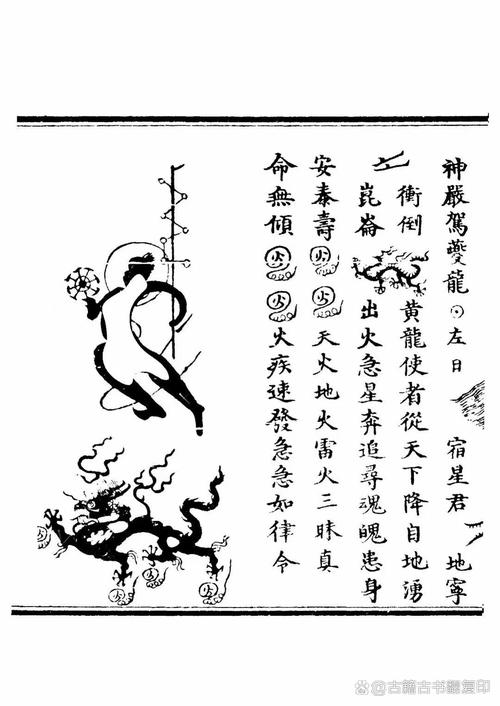 神嚴駕夔龍左日宿星君地寧
衝倒黃龍使者從天下降自地湧
崑崙出火急星奔追尋魂魄患身
安泰壽火火天火地火雷火三昧真
命無傾火火火疾速發急急如律令
火火火火
古籍古书翻复印